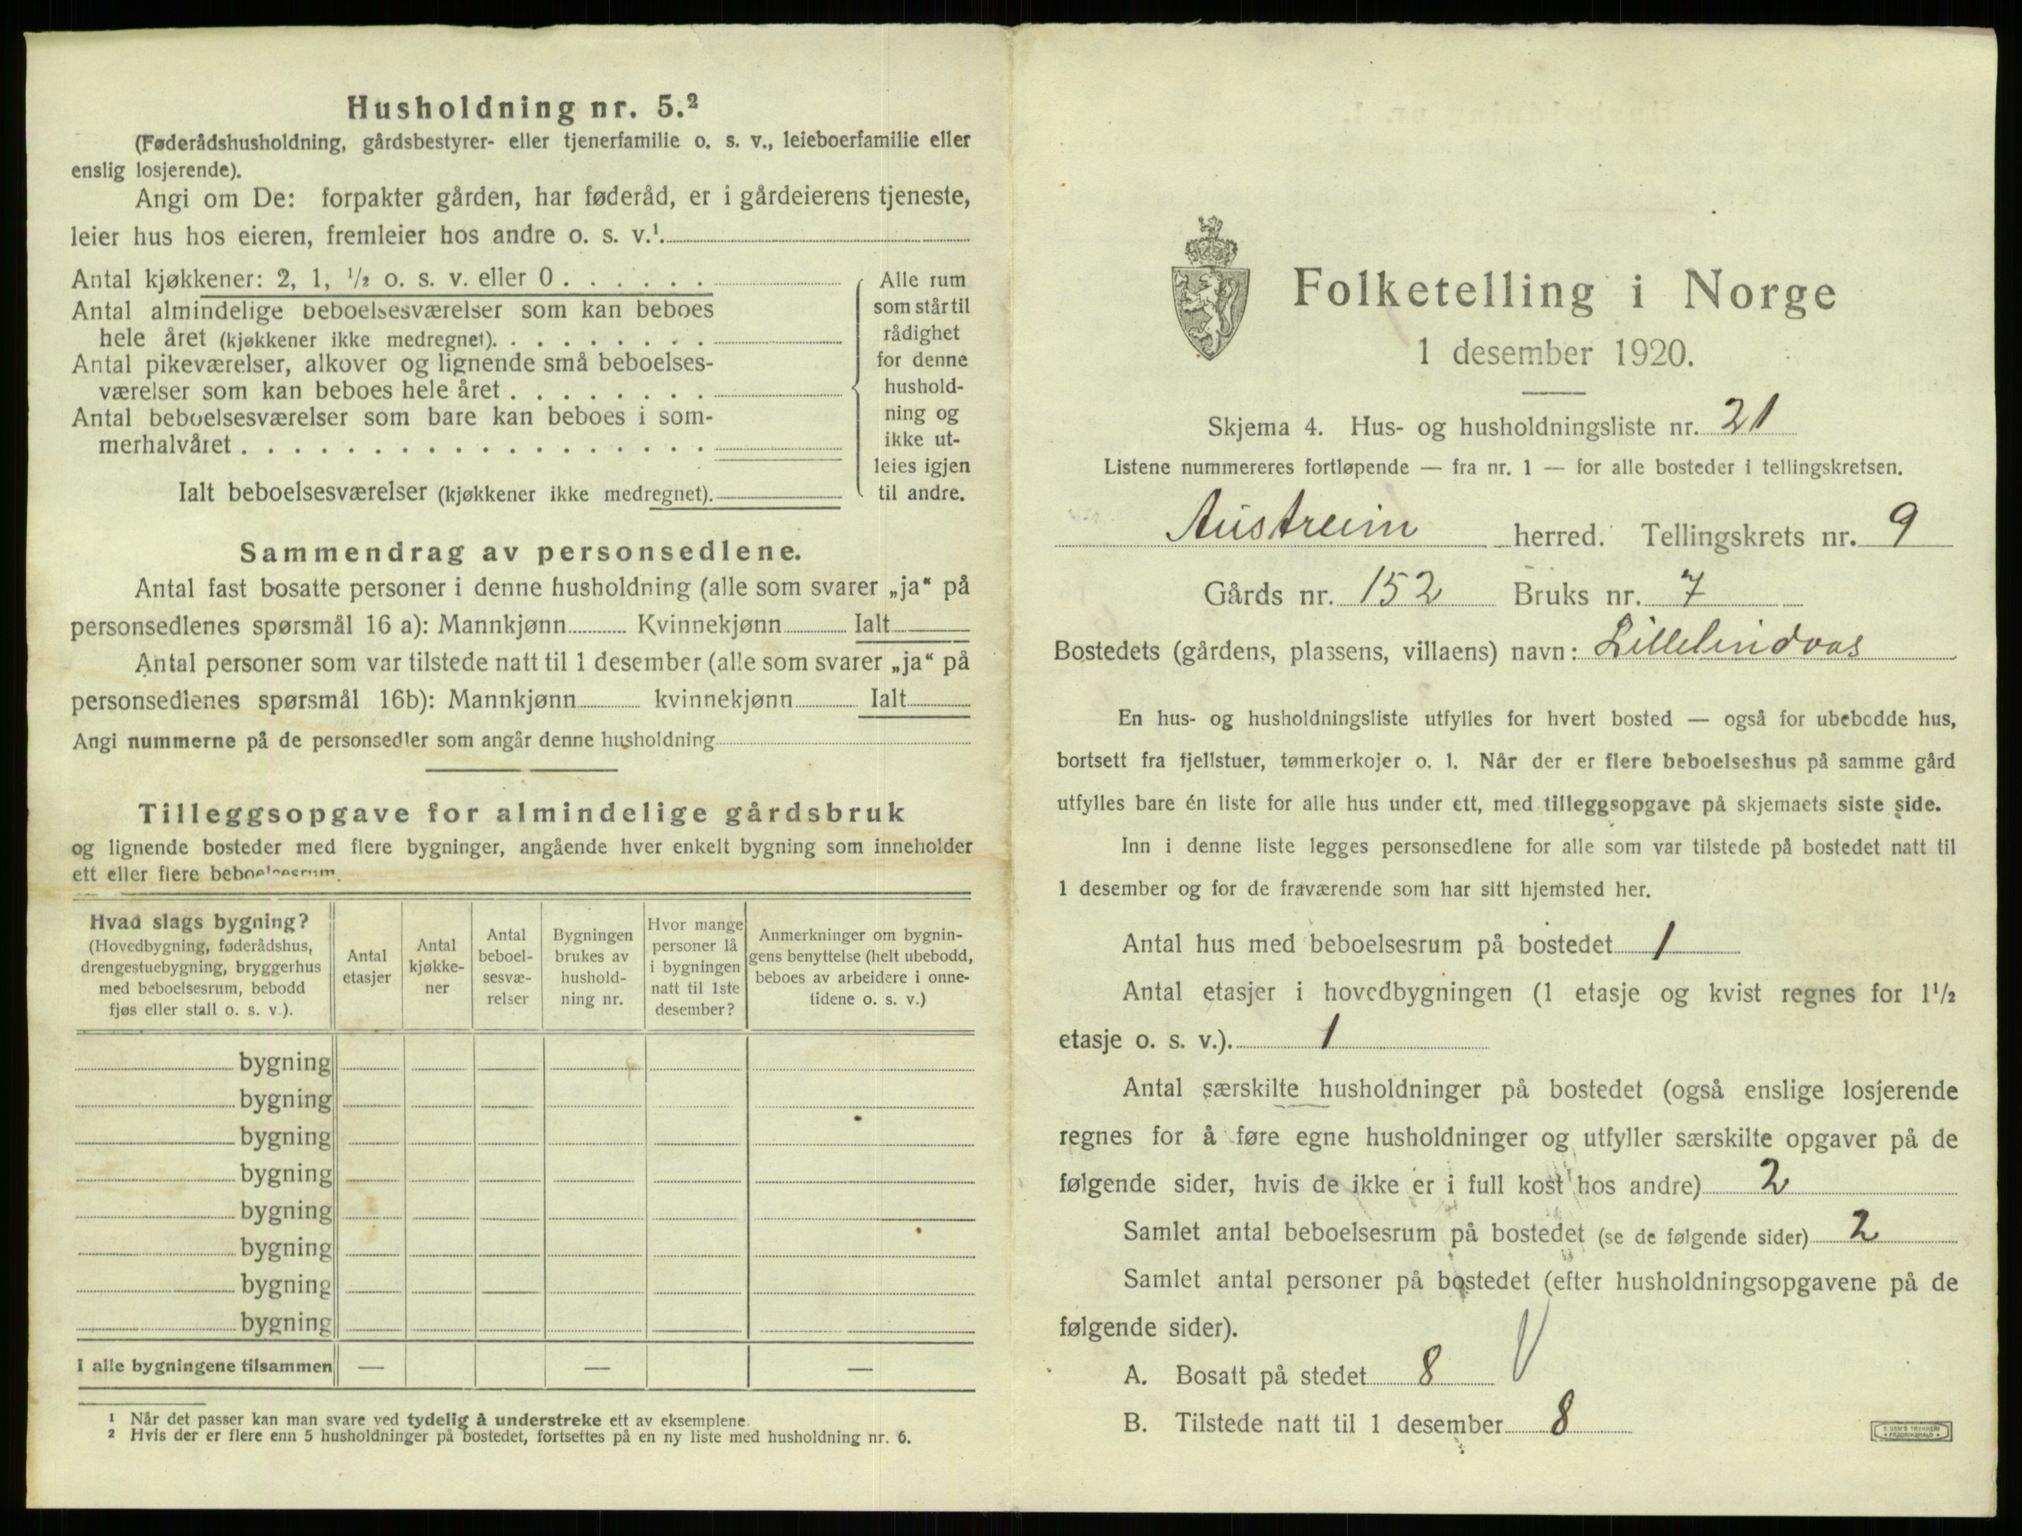 Husholdning nr. 5.²
(Føderådshusholdning, gårdsbestyrer- eller tjenerfamilie o. s. v., leieboerfamilie eller
enslig losjerende).
Angi om De: forpakter gården, har føderåd, er i gårdeierens tjeneste,
leier hus hos eieren, fremleier hos andre o. s. v.¹
Antal kjøkkener: 2, 1, ½ o. s. v. eller 0
Antal almindelige beboelsesværelser som kan beboes
hele året (kjøkkener ikke medregnet).
Antal pikeværelser, alkover og lignende små beboelses-
værelser som kan beboes hele året
Antal beboelsesværelser som bare kan beboes i som-
merhalvåret
Ialt beboelsesværelser (kjøkkener ikke medregnet).
Alle rum
som står til
rådighet
for denne
hushold-
ning og
ikke ut-
leies igjen
til andre.
Sammendrag av personsedlene.
Antal fast bosatte personer i denne husholdning (alle som svarer „ja“ på
personsedlenes spørsmål 16 a): Mannkjønn Kvinnekjønn Ialt
Antal personer som var tilstede natt til 1 desember (alle som svarer „ja“ på
personsedlenes spørsmål 16b): Mannkjønn kvinnekjønn Ialt
Angi nummerne på de personsedler som angår denne husholdning
Tilleggsopgave for almindelige gårdsbruk
og lignende bosteder med flere bygninger, angående hver enkelt bygning som inneholder
ett eller flere beboelsesrum.
Hvad slags bygning?
(Hovedbygning, føderådshus,
drengestuebygning, bryggerhus
med beboelsesrum, bebodd
fjøs eller stall o. s. v.).
Antal
etasjer
Antal
kjøkke-
ner
Antal
beboel-
sesvæ-
relser
Bygningen
brukes av
hushold-
ning nr.
Hvor mange
personer lå
i bygningen
natt til 1ste
desember?
Anmerkninger om bygnin-
gens benyttelse (helt ubebodd,
beboes av arbeidere i onne-
tidene o. s. v.)
bygning
bygning
bygning
bygning
bygning
bygning
bygning
bygning
I alle bygningene tilsammen — — —
¹ Når det passer kan man svare ved tydelig å understreke ett av eksemplene.
² Hvis der er flere enn 5 husholdninger på bostedet, fortsettes på en ny liste med husholdning nr. 6.
Folketelling i Norge
1 desember 1920.
Skjema 4. Hus- og husholdningsliste nr. 21
Listene nummereres fortløpende — fra nr. 1 — for alle bosteder i tellingskretsen.
Austreim herred. Tellingskrets nr. 9
Gårds nr. 152 Bruks nr. 7
Bostedets (gårdens, plassens, villaens) navn: Lillelindaas
En hus- og husholdningsliste utfylles for hvert bosted — også for ubebodde hus,
bortsett fra fjellstuer, tømmerkojer o. l. Når der er flere beboelseshus på samme gård
utfylles bare én liste for alle hus under ett, med tilleggsopgave på skjemaets siste side.
Inn i denne liste legges personsedlene for alle som var tilstede på bostedet natt til
1 desember og for de fraværende som har sitt hjemsted her.
Antal hus med beboelsesrum på bostedet 1
Antal etasjer i hovedbygningen (1 etasje og kvist regnes for 1½
etasje o. s. v.). 1
Antal særskilte husholdninger på bostedet (også enslige losjerende
regnes for å føre egne husholdninger og utfyller særskilte opgaver på de
følgende sider, hvis de ikke er i full kost hos andre) 2
Samlet antal beboelsesrum på bostedet (se de følgende sider) 2
Samlet antal personer på bostedet (efter husholdningsopgavene på de
følgende sider).
A. Bosatt på stedet 8
B. Tilstede natt til 1 desember 8